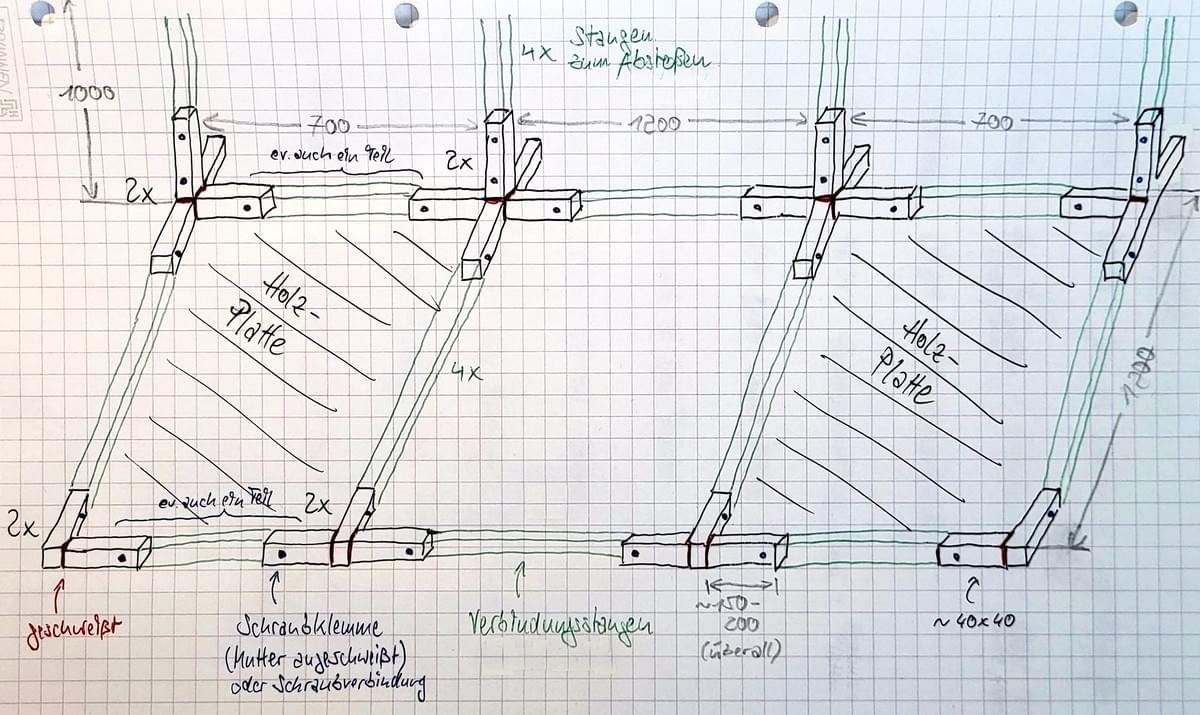 4x Stangen
zum Abstoßen
1000
700
1200
700
ev. auch ein Teil
2x
2x
Holz-
Platte
Holz-
Platte
4x
1200
ev. auch ein Teil
2x
2x
geschweißt
Schraubklemme
(Mutter angeschweißt)
oder Schraubverbindung
Verbindungsstangen
~150-
200
(überall)
~ 40x40